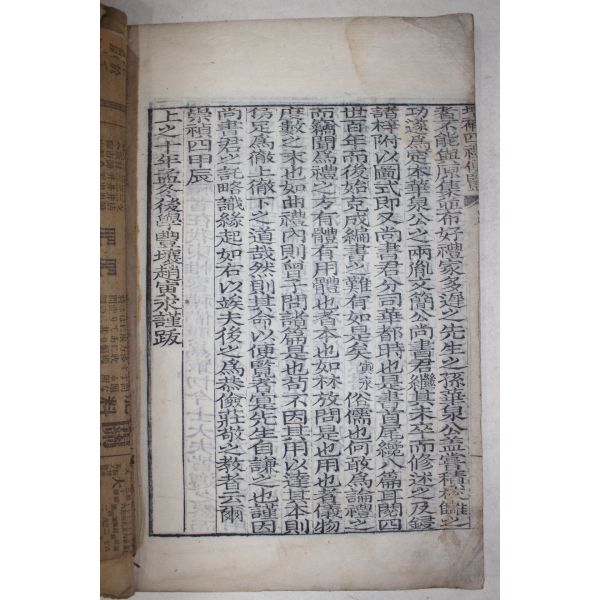 增補四禮便覽
者不能與原集並布好禮家多遲之先生之孫華泉公盖嘗積校讎之
功遂爲定本華泉公之兩胤文簡公尙書君繼其未卒而修述之及鋟
諸梓附以圖式即又尙書君分司華都時也是書首尾纔八篇耳閱四
世百年而後始克成編書之難有如是矣寅永俗儒也何敢爲論禮之
而竊聞爲禮之方有體有用體也者本也如林放問是也用也者儀物
度數之末也如曲禮內則曾子問諸篇是也苟不因其用以達其本則
烏足爲徹上徹下之道哉然則其命以便覽者寔先生自謙之也謹因
尙書君之託略識緣起如右以竢夫後之爲恭儉莊敬之教者云爾
崇禎四甲辰
上之十年孟冬後學豐壤趙寅永謹跋
肥
肥
料